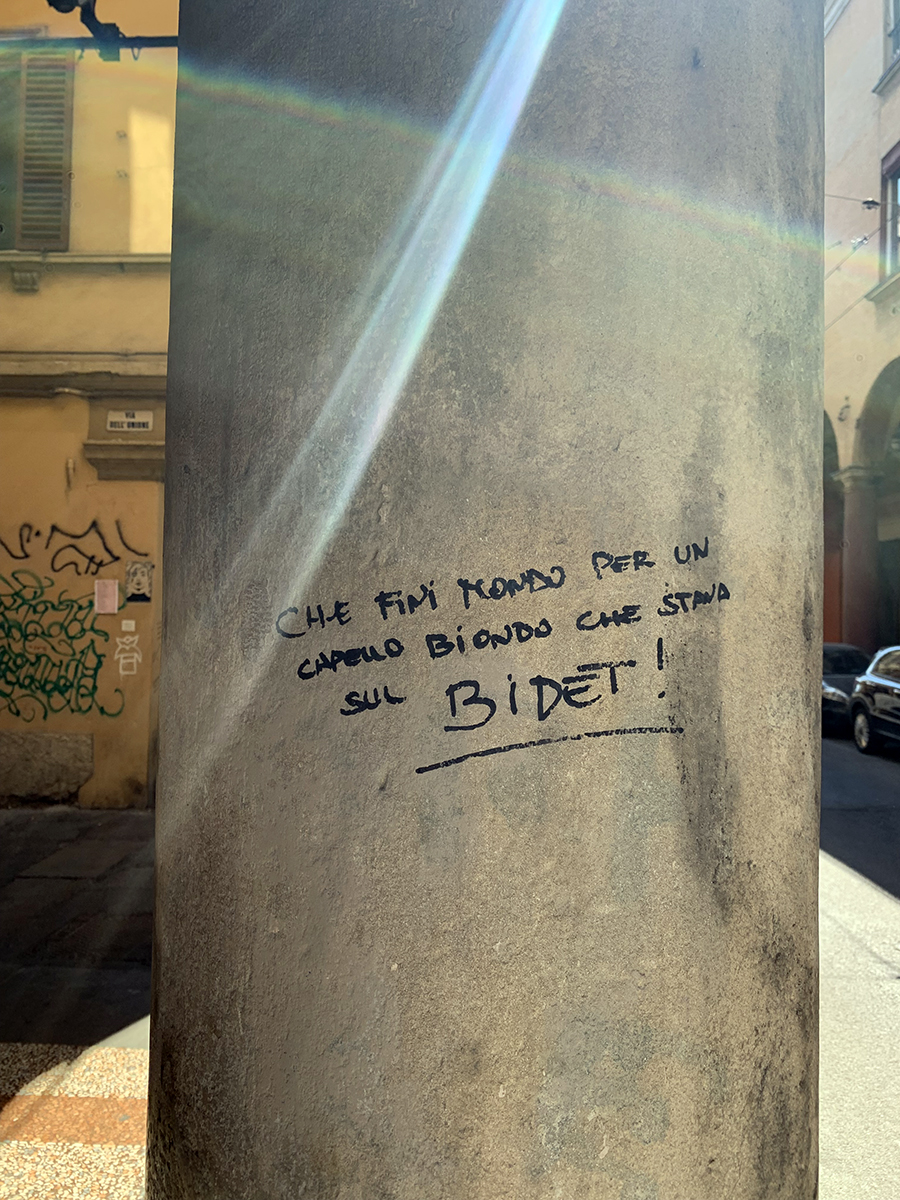 VIA
DELL'UNIONE
CHE FINÌ MONDO PER UN
CAPELLO BIONDO CHE STAVA
SUL BIDET!